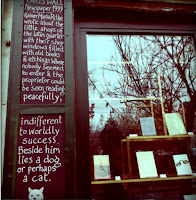 PARIS WALL
Newspaper 1999
Rainer Maria Rilke
wrote about the
little shops of
the latin quarter
with their shop
windows filled
with old books
& etchings where
nobody seemed
to enter & the
proprietor could
be seen reading
peacefully,
indifferent
to worldly
success.
Beside him
lies a dog
or perhaps
a cat.